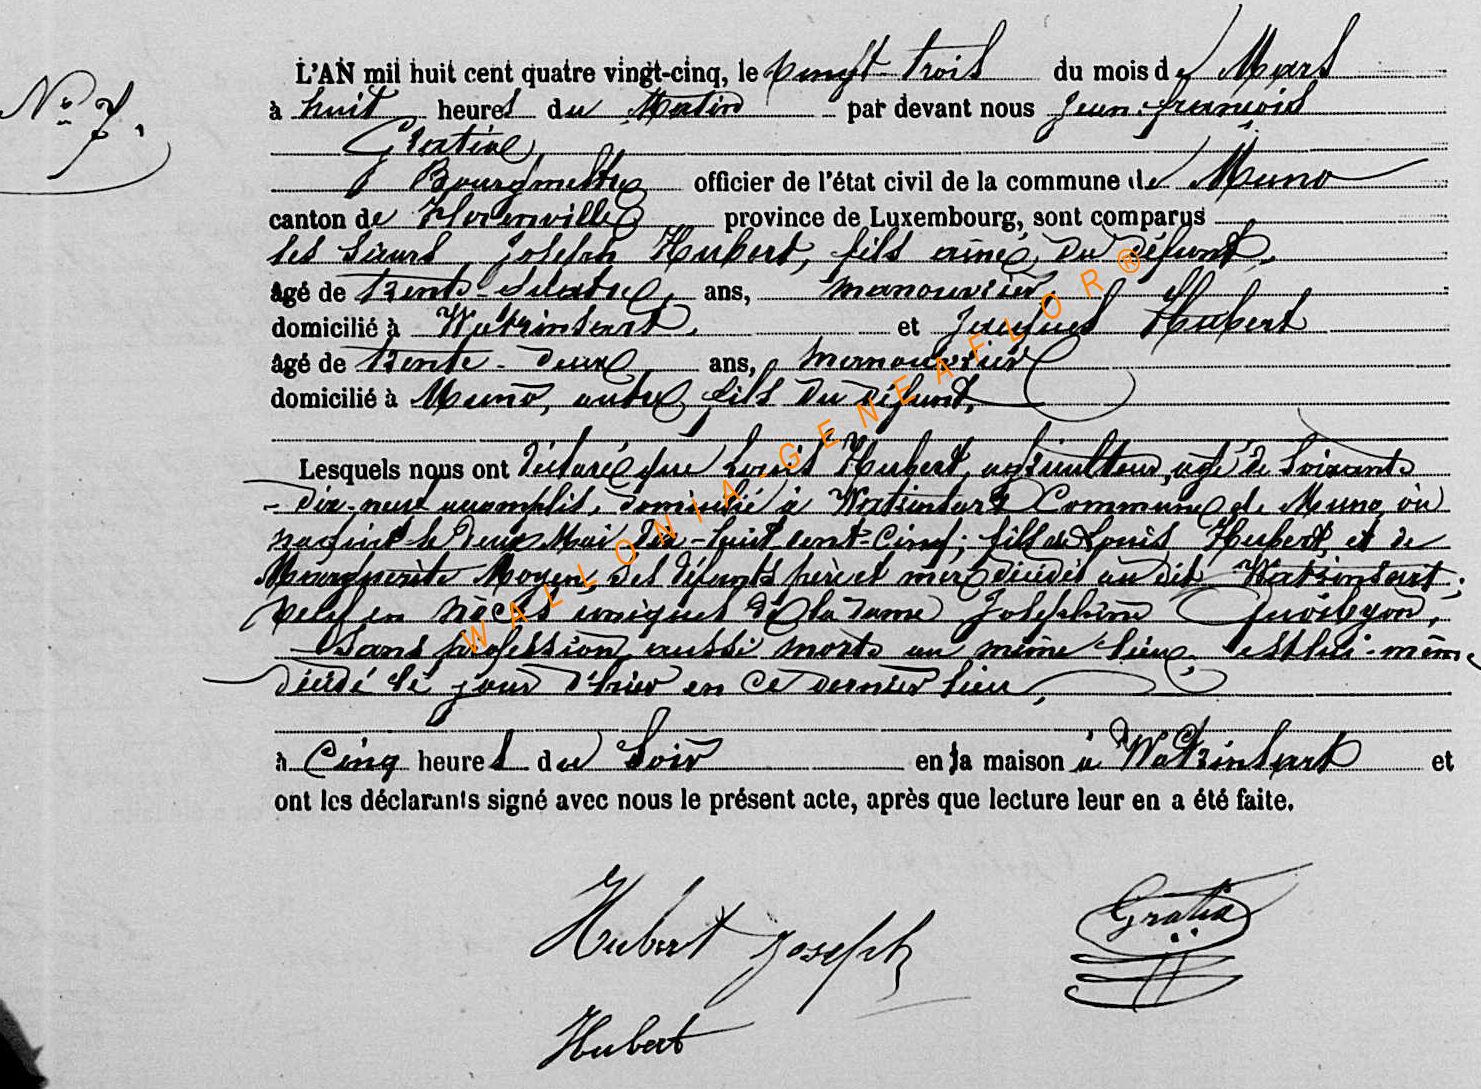 N° 7.
L'AN mil huit cent quatre vingt-cinq, le vingt-trois du mois de Mars
à huit heures du Matin par devant nous Jean-françois
Gratia
Bourgmestre officier de l'état civil de la commune de Muno
canton de Florenville province de Luxembourg, sont comparus
les sieurs Joseph Hubert, fils ainé du défunt,
âgé de trente-quatre, ans, manouvrier,
domicilié à Watrinsart, et Jacques Hubert
âgé de trente-deux ans, manouvrier
domicilié à Muno, autre fils du défunt,
Lesquels nous ont déclaré que Louis Hubert, agriculteur, agé de soixante
-dix-neuf accomplis, domicilié à Watrinsart Commune de Muno où
naquit le deux Mai dix-huit cent-cinq; fils de Louis Hubert, et de
Marguerite Moyen, ses défunts père et mère décédés au dit Watrinsart;
veuf en nôces uniques de la dame Joséphine
sans profession, aussi morte au même lieu, est lui-même
décédé le jour d'hier en ce dernier lieu,
à Cinq heures du Soir en la maison à Watrinsart et
ont les déclarants signé avec nous le présent acte, après que lecture leur en a été faite.
Hubert Joseph
Gratia
Hubert
WALLONIA-GENEAFLOR®